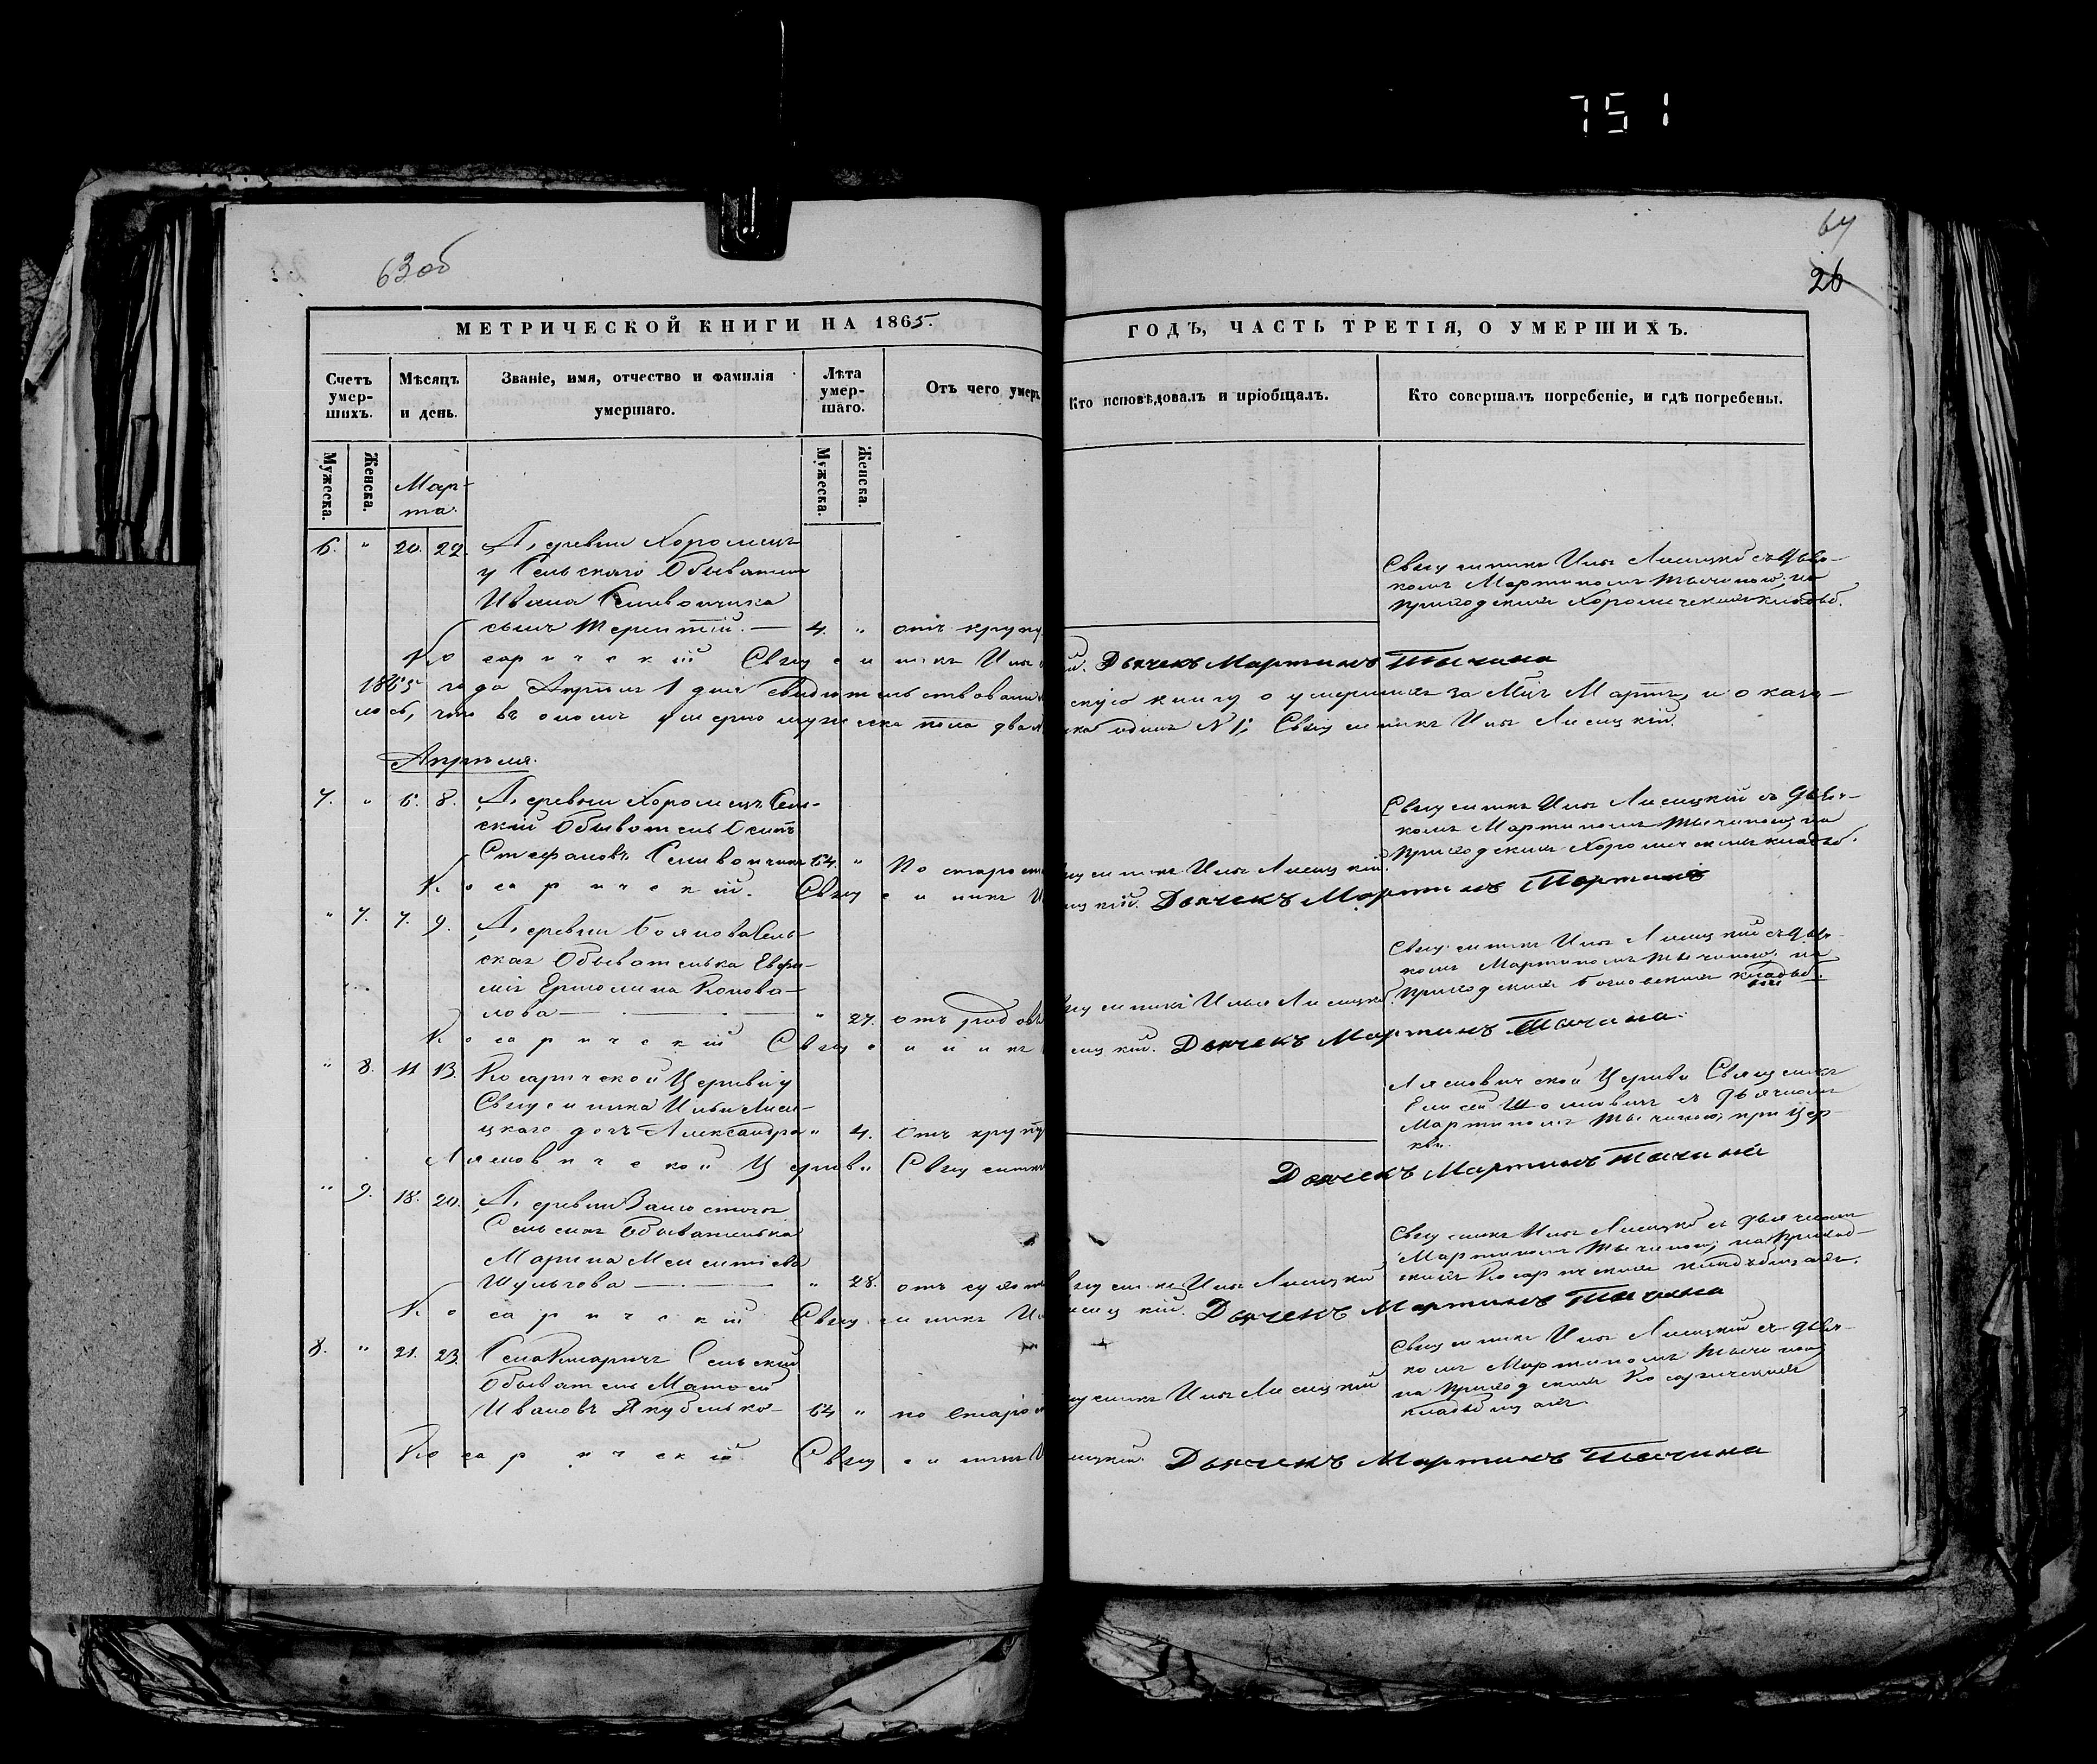 751
63 об
64
26
МЕТРИЧЕСКОЙ КНИГИ НА 1865.
ГОДЪ, ЧАСТЬ ТРЕТІЯ, О УМЕРШИХЪ.
Счетъ умер-шихъ.
Мѣсяцъ и день.
Званіе, имя, отчество и фамилія умершаго.
Лѣта умер-шаго.
Отъ чего умеръ
Кто исповѣдовалъ и пріобщалъ.
Кто совершалъ погребеніе, и гдѣ погребены.
Мужеска.
Женска.
Мар-
та.
Мужеска.
Женска.
6. " 20. 22. Деревни Хоромецъ
у Сельскаго Обывателя
Ивана Селивончика
сынъ Терентій. — 4. " отъ крупу
Священникъ Илья Лисицкій съ дьяч-
комъ Мартиномъ Тычиною, на
приходскомъ Хоромечскомъ кладб.
Косаричскій Священникъ Илья
Дьячекъ Мартинъ Тычина
1865 года Апрѣля 1 дня свидѣтельствовали
скую книгу о умершихъ за Мцъ Мартъ, и оказа-
лось, что въ ономъ умерло мужеска пола два
ска одинъ N 1; Священникъ Илья Лисицкій.
Апрѣля.
7. " 6. 8. Деревни Хоромецъ Сель-
скій Обыватель Осипъ
Стефановъ Селивончикъ 64. " По старости
щенникъ Илья Лисицкій.
Священникъ Илья Лисицкій съ дьяч-
комъ Мартиномъ Тычиною, на
приходскомъ Хоромечскомъ кладб.
Косаричскій Священникъ И
цкій. Дьячекъ Мартинъ
" 7. 7. 9. Деревни Бояново Сель-
ская Обывателька Евфи-
мія Ермолина Конова-
лова — " 27. отъ родовъ
щенникъ Илья Лисицкій
Священникъ Илья Лисицкій съ дьяч-
комъ Мартиномъ Тычиною, на
приходскомъ Бояновскомъ кладб.
Косаричскій Священникъ
сицкій. Дьячекъ Мартинъ Тычина.
" 8. 11 13. Косаричской Церкви у
Священника Ильи Лиси-
цкаго дочь Александра " 4. Отъ крупу
Лясковичской Церкви Священникъ
Елисей съ дьячкомъ
Мартиномъ Тычиною, при Цер-
кви.
Лясковичской Церкви Священникъ
Дьячекъ Мартинъ Тычина
" 9. 18. 20. Деревни
Сельская Обывателька
Марина Мелентіева
Шульгова — " 28. отъ сухоты
щенникъ Илья Лисицкій
Священникъ Илья Лисицкій съ дьячкомъ
Мартиномъ Тычиною, на приход-
скомъ Косаричскомъ кладбищѣ.
Косаричскій Священникъ Ил
сицкій. Дьячекъ Мартинъ Тычина
8. " 21. 23. Села Косаричъ Сельскій
Обыватель Матѳей
Ивановъ Якубенко 64 " по Старос
щенникъ Илья Лисицкій
Священникъ Илья Лисицкій съ дьяч-
комъ Мартиномъ Тычиною
на приходскомъ Косаричскомъ
кладбищѣ.
Косаричскій Священникъ И
сицкій. Дьячекъ Мартинъ Тычина